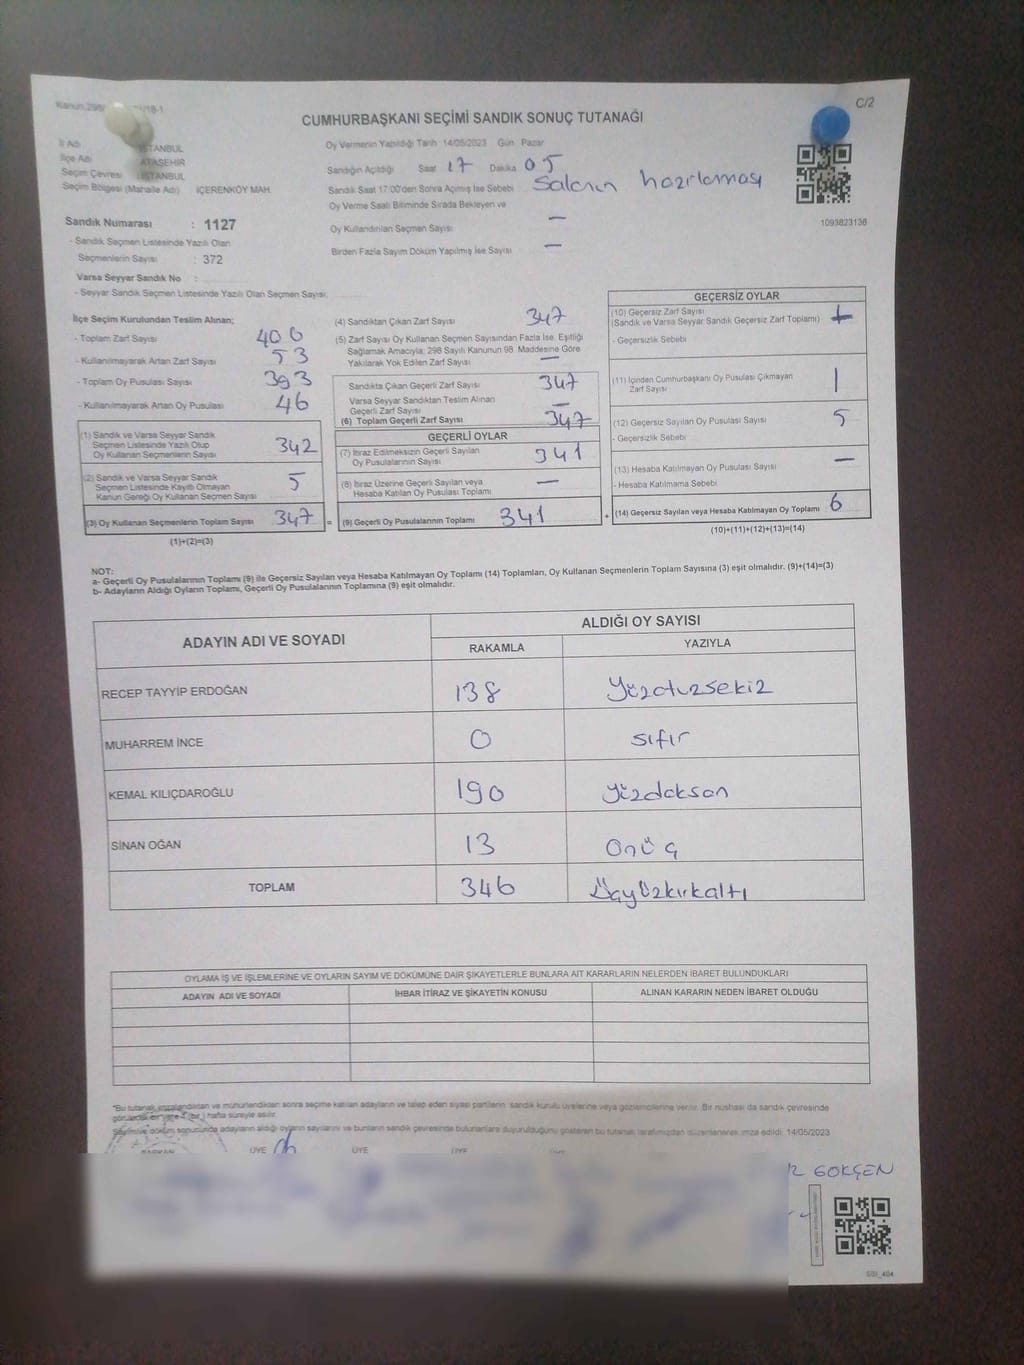 C/2
CUMHURBAŞKANI SEÇİMİ SANDIK SONUÇ TUTANAĞI
İl Adı İSTANBUL
İlçe Adı ATAŞEHİR
Seçim Çevresi İSTANBUL
Seçim Bölgesi (Mahalle Adı) İÇERENKÖY MAH.
Oy Vermenin Yapıldığı Tarih 14/05/2023 Gün Pazar
Sandığın Açıldığı Saat 17 Dakika 05
Sandık Saat 17:00'den Sonra Açılmış İse Sebebi Salonın hazırlaması
Oy Verme Saati Bitiminde Sırada Bekleyen ve
Oy Kullandırılan Seçmen Sayısı —
Birden Fazla Sayım Döküm Yapılmış İse Sayısı —
1093823138
Sandık Numarası : 1127
- Sandık Seçmen Listesinde Yazılı Olan
Seçmenlerin Sayısı : 372
Varsa Seyyar Sandık No :
- Seyyar Sandık Seçmen Listesinde Yazılı Olan Seçmen Sayısı:
İlçe Seçim Kurulundan Teslim Alınan;
- Toplam Zarf Sayısı 400
- Kullanılmayarak Artan Zarf Sayısı 53
- Toplam Oy Pusulası Sayısı 393
- Kullanılmayarak Artan Oy Pusulası 46
(1) Sandık ve Varsa Seyyar Sandık
Seçmen Listesinde Yazılı Olup
Oy Kullanan Seçmenlerin Sayısı 342
(2) Sandık ve Varsa Seyyar Sandık
Seçmen Listesinde Kayıtlı Olmayan
Kanun Gereği Oy Kullanan Seçmen Sayısı 5
(3) Oy Kullanan Seçmenlerin Toplam Sayısı 347 =
(1)+(2)=(3)
(4) Sandıktan Çıkan Zarf Sayısı 347
(5) Zarf Sayısı Oy Kullanan Seçmen Sayısından Fazla İse, Eşitliği
Sağlamak Amacıyla; 298 Sayılı Kanunun 98. Maddesine Göre
Yakılarak Yok Edilen Zarf Sayısı —
Sandıkta Çıkan Geçerli Zarf Sayısı 347
Varsa Seyyar Sandıktan Teslim Alınan
Geçerli Zarf Sayısı —
(6) Toplam Geçerli Zarf Sayısı 347
GEÇERLİ OYLAR
(7) İtiraz Edilmeksizin Geçerli Sayılan
Oy Pusulalarının Sayısı 341
(8) İtiraz Üzerine Geçerli Sayılan veya
Hesaba Katılan Oy Pusulası Toplamı —
(9) Geçerli Oy Pusulalarının Toplamı 341 +
GEÇERSİZ OYLAR
(10) Geçersiz Zarf Sayısı
(Sandık ve Varsa Seyyar Sandık Geçersiz Zarf Toplamı)
- Geçersizlik Sebebi
(11) İçinden Cumhurbaşkanı Oy Pusulası Çıkmayan
Zarf Sayısı 1
(12) Geçersiz Sayılan Oy Pusulası Sayısı 5
- Geçersizlik Sebebi
(13) Hesaba Katılmayan Oy Pusulası Sayısı —
- Hesaba Katılmama Sebebi
(14) Geçersiz Sayılan veya Hesaba Katılmayan Oy Toplamı 6
(10)+(11)+(12)+(13)=(14)
NOT:
a- Geçerli Oy Pusulalarının Toplamı (9) ile Geçersiz Sayılan veya Hesaba Katılmayan Oy Toplamı (14) Toplamları, Oy Kullanan Seçmenlerin Toplam Sayısına (3) eşit olmalıdır. (9)+(14)=(3)
b- Adayların Aldığı Oyların Toplamı, Geçerli Oy Pusulalarının Toplamına (9) eşit olmalıdır.
ADAYIN ADI VE SOYADI ALDIĞI OY SAYISI
RAKAMLA YAZIYLA
RECEP TAYYİP ERDOĞAN 138 Yüzotuzsekiz
MUHARREM İNCE 0 sıfır
KEMAL KILIÇDAROĞLU 190 Yüzdoksan
SİNAN OĞAN 13 Onüç
TOPLAM 346 Üçyüzkırkaltı
OYLAMA İŞ VE İŞLEMLERİNE VE OYLARIN SAYIM VE DÖKÜMÜNE DAİR ŞİKAYETLERLE BUNLARA AİT KARARLARIN NELERDEN İBARET BULUNDUKLARI
ADAYIN ADI VE SOYADI İHBAR İTİRAZ VE ŞİKAYETİN KONUSU ALINAN KARARIN NEDEN İBARET OLDUĞU
*Bu tutanak imzalandıktan ve mühürlendikten sonra seçime katılan adayların ve talep eden siyasi partilerin sandık kurulu üyelerine veya gözlemcilerine verilir. Bir nüshası da sandık çevresinde
görülecek bir yere 1 (bir) hafta süreyle asılır.
Sayım ve döküm sonucunda adayların aldığı oyların sayılarını ve bunların sandık çevresinde bulunanlara duyurulduğunu gösteren bu tutanak tarafımızdan düzenlenerek imza edildi. 14/05/2023
BAŞKAN ÜYE ÜYE ÜYE
GÖKÇEN
SBİ_404